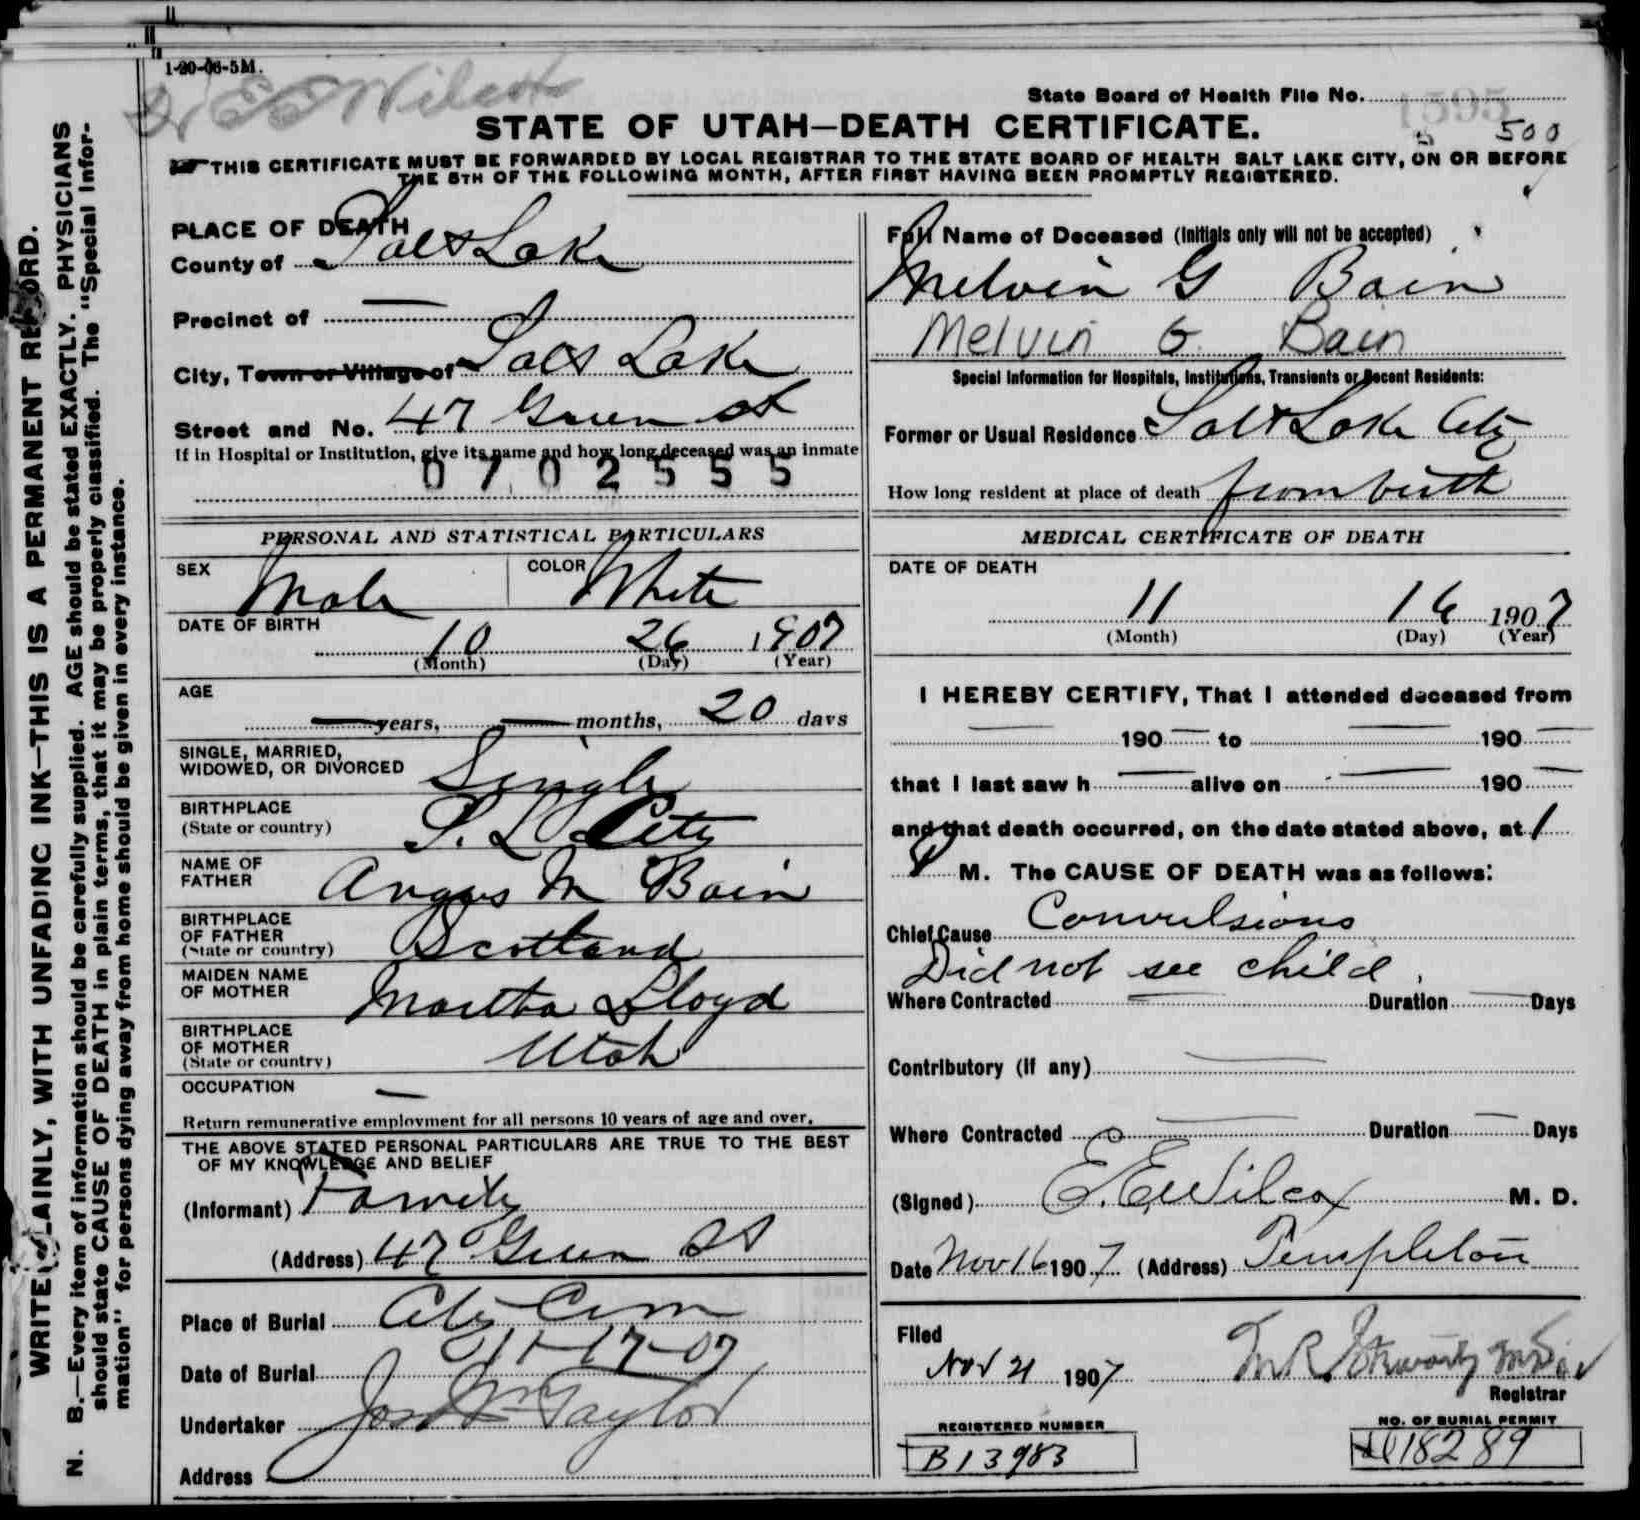 1-20-06-5M.
Dr E E Wilcox
State Board of Health File No. 1595
STATE OF UTAH—DEATH CERTIFICATE.
500
THIS CERTIFICATE MUST BE FORWARDED BY LOCAL REGISTRAR TO THE STATE BOARD OF HEALTH SALT LAKE CITY, ON OR BEFORE
THE 5TH OF THE FOLLOWING MONTH, AFTER FIRST HAVING BEEN PROMPTLY REGISTERED.
WRITE PLAINLY, WITH UNFADING INK—THIS IS A PERMANENT RECORD.
N. B.—Every item of information should be carefully supplied. AGE should be stated EXACTLY. PHYSICIANS
should state CAUSE OF DEATH in plain terms, that it may be properly classified. The "Special Infor-
mation" for persons dying away from home should be given in every instance.
PLACE OF DEATH
County of Salt Lake
Precinct of —
City, Town or Village of Salt Lake
Street and No. 47 Green st
If in Hospital or Institution, give its name and how long deceased was an inmate
0702555
PERSONAL AND STATISTICAL PARTICULARS
SEX Male COLOR White
DATE OF BIRTH
10 26 1907
(Month) (Day) (Year)
AGE
— years, — months, 20 days
SINGLE, MARRIED,
WIDOWED, OR DIVORCED Single
BIRTHPLACE
(State or country) S. L. City
NAME OF
FATHER Angus M Bain
BIRTHPLACE
OF FATHER
(State or country) Scotland
MAIDEN NAME
OF MOTHER Martha Lloyd
BIRTHPLACE
OF MOTHER
(State or country) Utah
OCCUPATION —
Return remunerative employment for all persons 10 years of age and over.
THE ABOVE STATED PERSONAL PARTICULARS ARE TRUE TO THE BEST
OF MY KNOWLEDGE AND BELIEF
(Informant) Family
(Address) 47 Green St
Place of Burial City Cem
Date of Burial 11-17-07
Undertaker Jos Wm Taylor
Address
Full Name of Deceased (Initials only will not be accepted)
Melvin G Bain
Melvin G. Bain
Special Information for Hospitals, Institutions, Transients or Recent Residents:
Former or Usual Residence Salt Lake City
How long resident at place of death from birth
MEDICAL CERTIFICATE OF DEATH
DATE OF DEATH
11 16 1907
(Month) (Day) (Year)
I HEREBY CERTIFY, That I attended deceased from
— 190 — to — 190 —
that I last saw h — alive on — 190 —
and that death occurred, on the date stated above, at 1
P M. The CAUSE OF DEATH was as follows:
Chief Cause Convulsions
Did not see child.
Where Contracted — Duration — Days
Contributory (if any) —
Where Contracted — Duration — Days
(Signed) E. E. Wilcox M. D.
Date Nov 16 1907 (Address) Templeton
Filed
Nov 21 1907
Registrar
REGISTERED NUMBER
B13983
NO. OF BURIAL PERMIT
18289